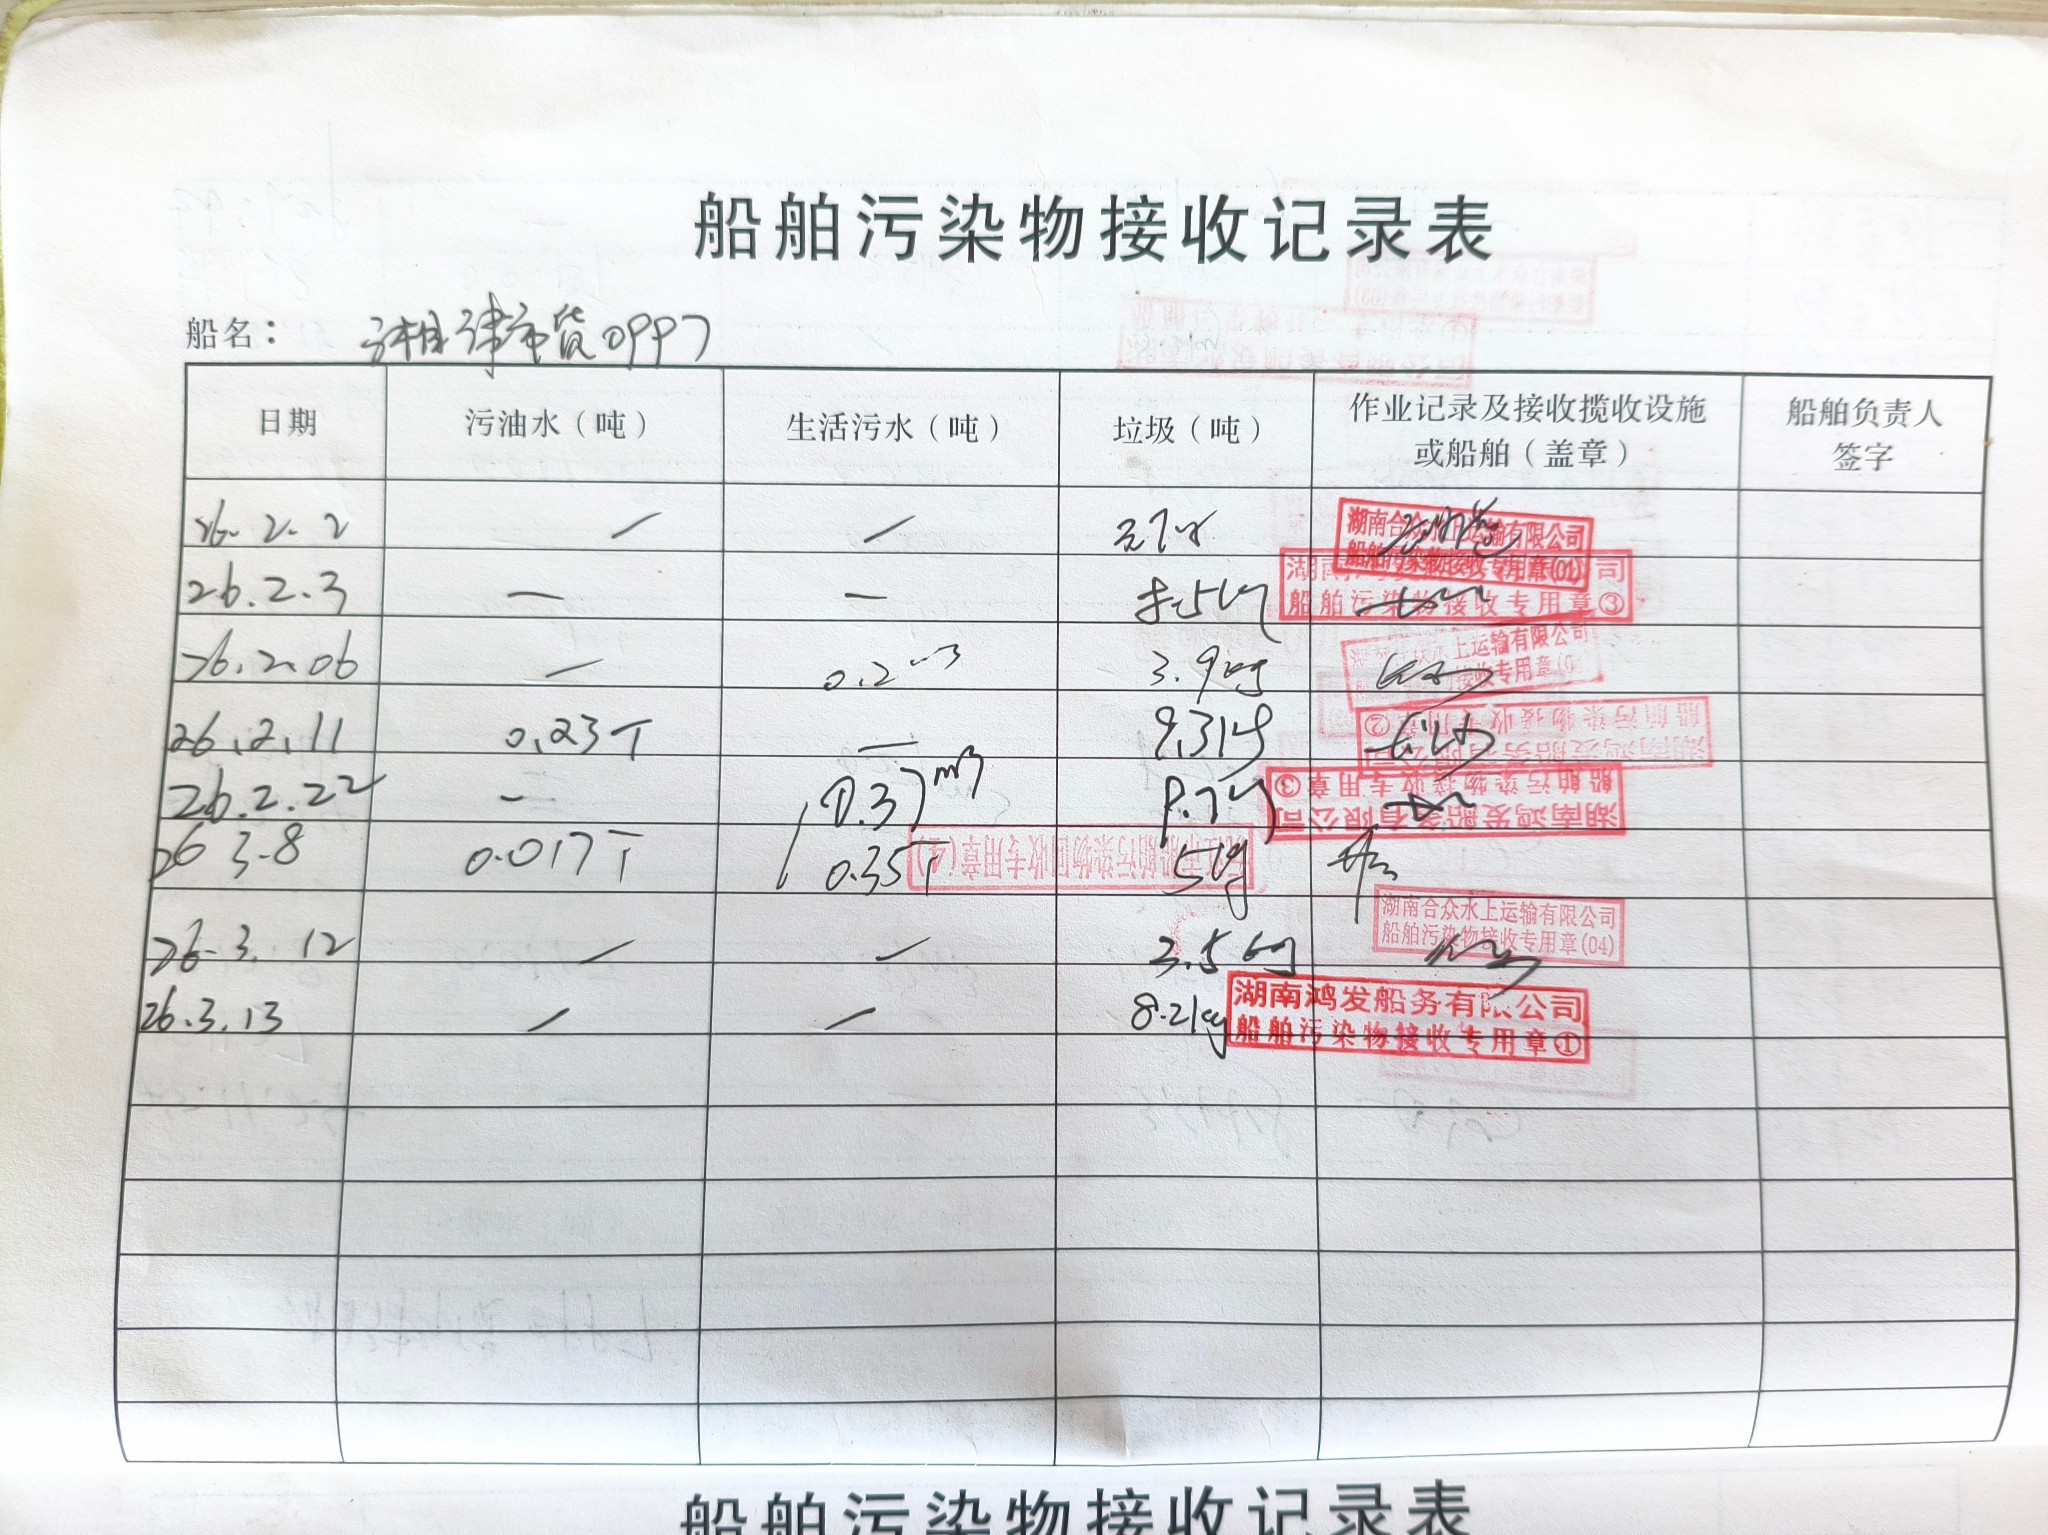 船舶污染物接收记录表
船名： 湘津市货0997
日期 污油水（吨） 生活污水（吨） 垃圾（吨） 作业记录及接收揽收设施或船舶（盖章） 船舶负责人签字
26.2.2 — —
湖南合众水上运输有限公司
船舶污染物接收专用章(01)
26.2.3 — —
船舶污染物接收专用章③
26.2.06 — 0.2 3.9kg
水上运输有限公司
接收专用章
26.2.11 0.23T —
湖南鸿发船务有限公司
船舶污染物接收专用章②
26.2.22 — 0.37m³
湖南鸿发船务有限公司
船舶污染物接收专用章③
26 3.8 0.017T 0.35T 5kg
船舶污染物回收专用章(4)
26.3.12 — — 3.5kg
湖南合众水上运输有限公司
船舶污染物接收专用章(04)
26.3.13 — — 8.2kg
湖南鸿发船务有限公司
船舶污染物接收专用章①
船舶污染物接收记录表